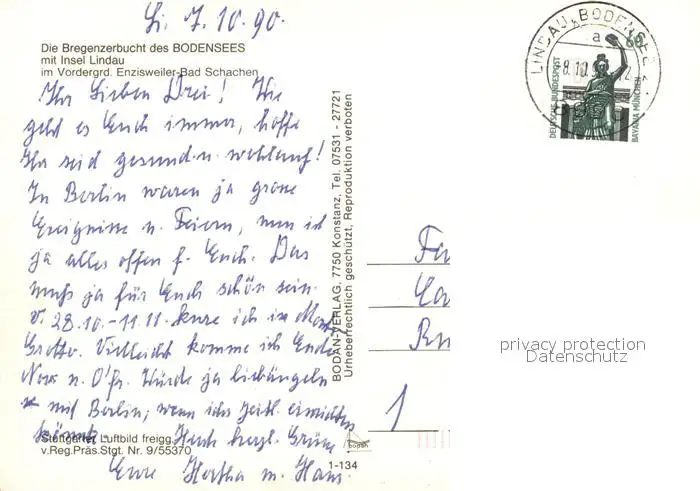 Li. 7.10.90.
Die Bregenzerbucht des BODENSEES
mit Insel Lindau
im Vordergrd. Enzisweiler-Bad Schachen
Ihr Lieben Drei! Wie
geht es Euch immer, hoffe
Ihr seid gesund u. wohlauf!
In Berlin waren ja grosse
Ereignisse u. Feiern, nun ist
ja alles offen f. Euch. Das
muß ja für Euch schön sein.
V. 28.10.-11.11. kure ich in
Grotto. Vielleicht komme ich Ende
Nov. n. Würde ja liebäugeln
mit Berlin, wenn ichs zeitl. einrichten
könnte. Herzl. Grüße
Eure Hertha m. Hans.
Stuttgarter Luftbild freigg.
v.Reg.Präs.Stgt. Nr. 9/55370
BODAN-VERLAG, 7750 Konstanz, Tel. 07531 - 27721
Urheberrechtlich geschützt, Reproduktion verboten
bodan
1-134
LINDAU, BODENSEE
a
8.10.
60
DEUTSCHE BUNDESPOST
BAVARIA MÜNCHEN
Fa
1
privacy protection
Datenschutz